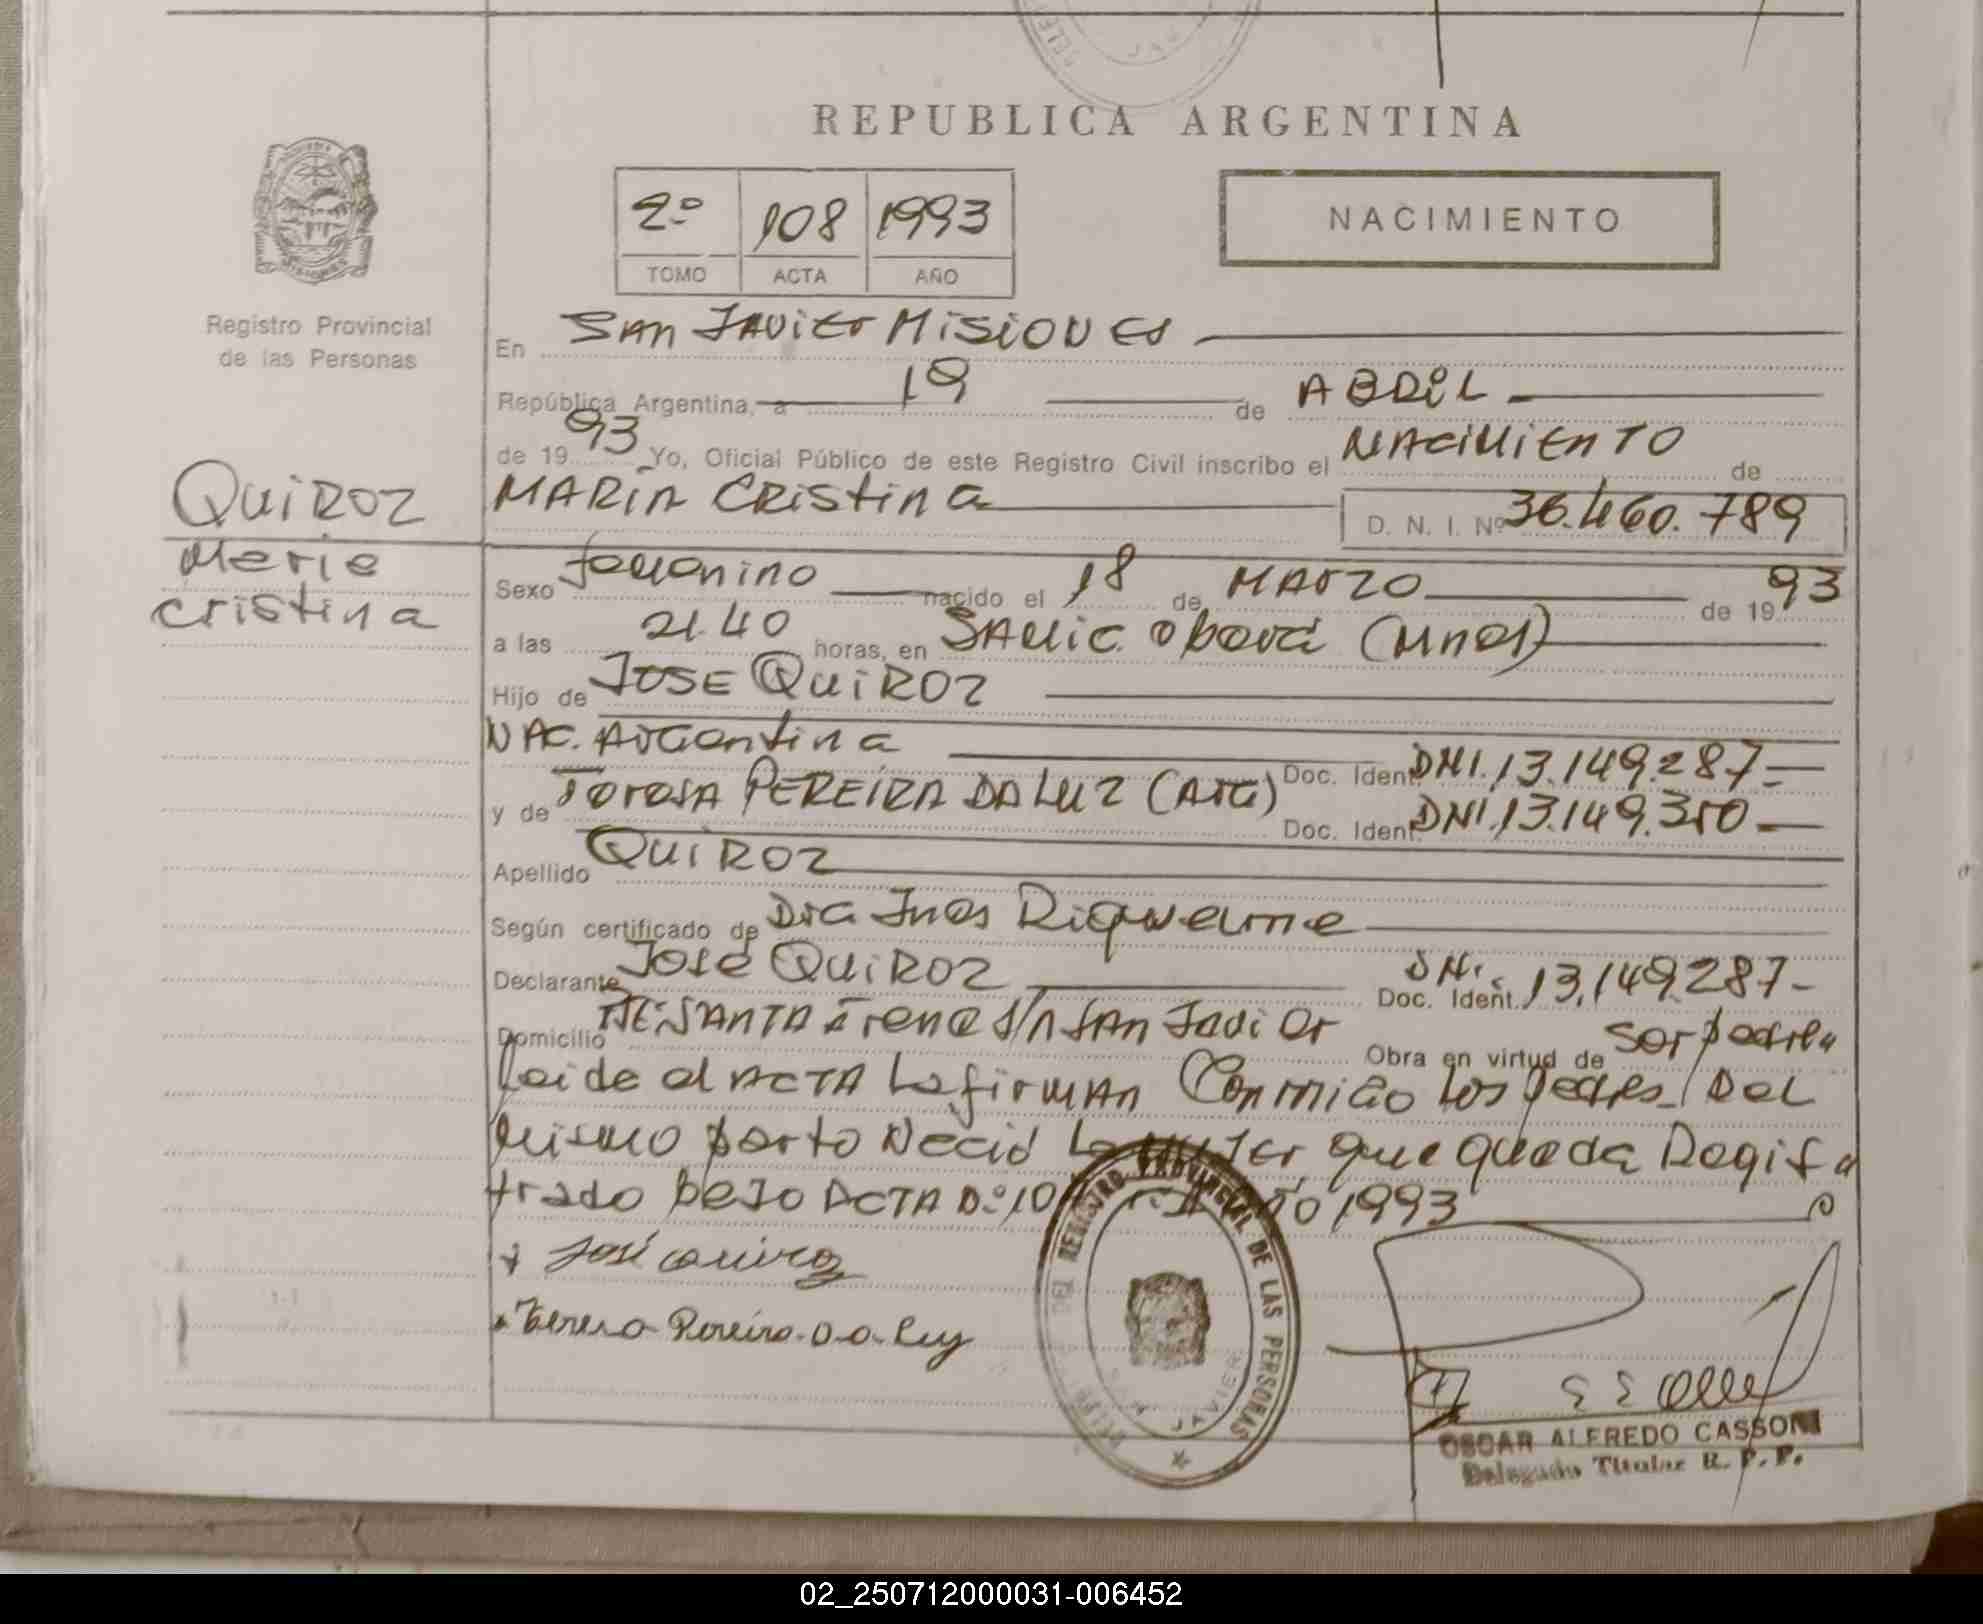 REPUBLICA ARGENTINA
2º 108 1993
TOMO ACTA AÑO
NACIMIENTO
Registro Provincial
de las Personas
QUIROZ
Maria
Cristina
En SAN JAVIER MISIONES
República Argentina, a 19 de ABRIL
de 1993 Yo, Oficial Público de este Registro Civil inscribo el NACIMIENTO de
MARIA CRISTINA D. N. I. Nº 36.460.789
Sexo femenino nacido el 18 de MARZO de 1993
a las 21.40 horas, en SAMIC. Oberá (Mnes)
Hijo de JOSE QUIROZ
NAC. Argentina Doc. Ident. DNI. 13.149.287
y de Teresa PEREIRA DA LUZ (Arg) Doc. Ident. DNI. 13.149.350
Apellido QUIROZ
Según certificado de Dra Ines Riquelme
Declarante José QUIROZ Doc. Ident. DNI. 13.149.287
Domicilio SANTA Irene S/N SAN Javier Obra en virtud de ser padre
Leida el ACTA La firman Conmigo Los padres. Del
mismo parto Nació La que queda Regis
trado bajo ACTA Nº 1993
José Quiroz
Teresa Pereira. D. a. Luz
DEL REGISTRO PROVINCIAL DE LAS PERSONAS
SAN JAVIER
OSCAR ALFREDO CASSONI
Delegado Titular R. P. P.
02_250712000031-006452